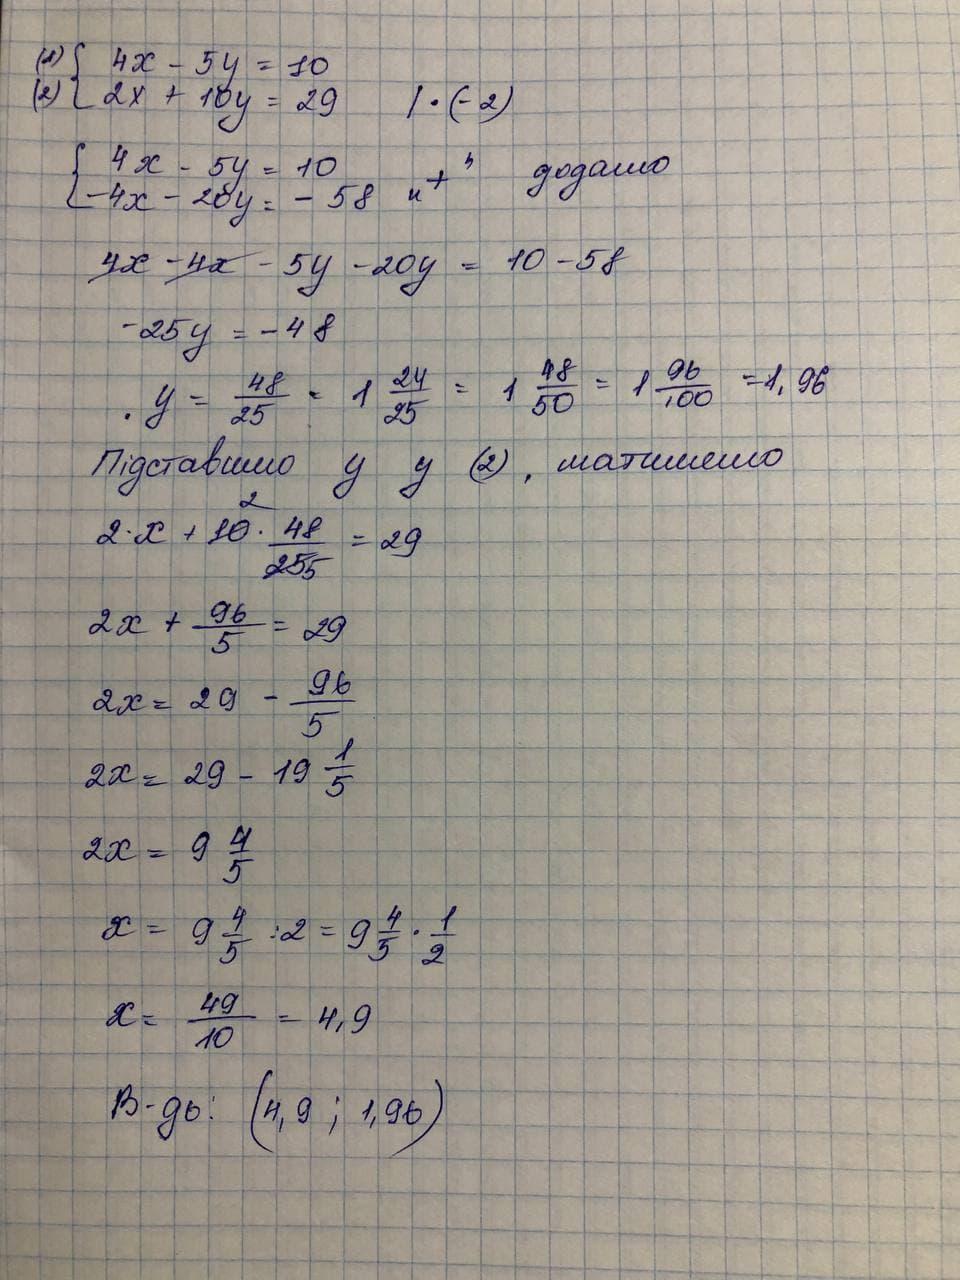 (1) { 4x - 5y = 10
(2) { 2x + 10y = 29 | · (-2)
{ 4x - 5y = 10
{ -4x - 20y = -58 "+" додамо
4x - 4x - 5y - 20y = 10 - 58
-25y = -48
y = 48/25 = 1 24/25 = 1 48/50 = 1 96/100 = 1,96
Підставимо y y (2), матимемо
2·x + 10 2 · 48/25 5 = 29
2x + 96/5 = 29
2x = 29 - 96/5
2x = 29 - 19 1/5
2x = 9 4/5
x = 9 4/5 : 2 = 9 4/5 · 1/2
x = 49/10 = 4,9
В-дь: (4,9 ; 1,96)